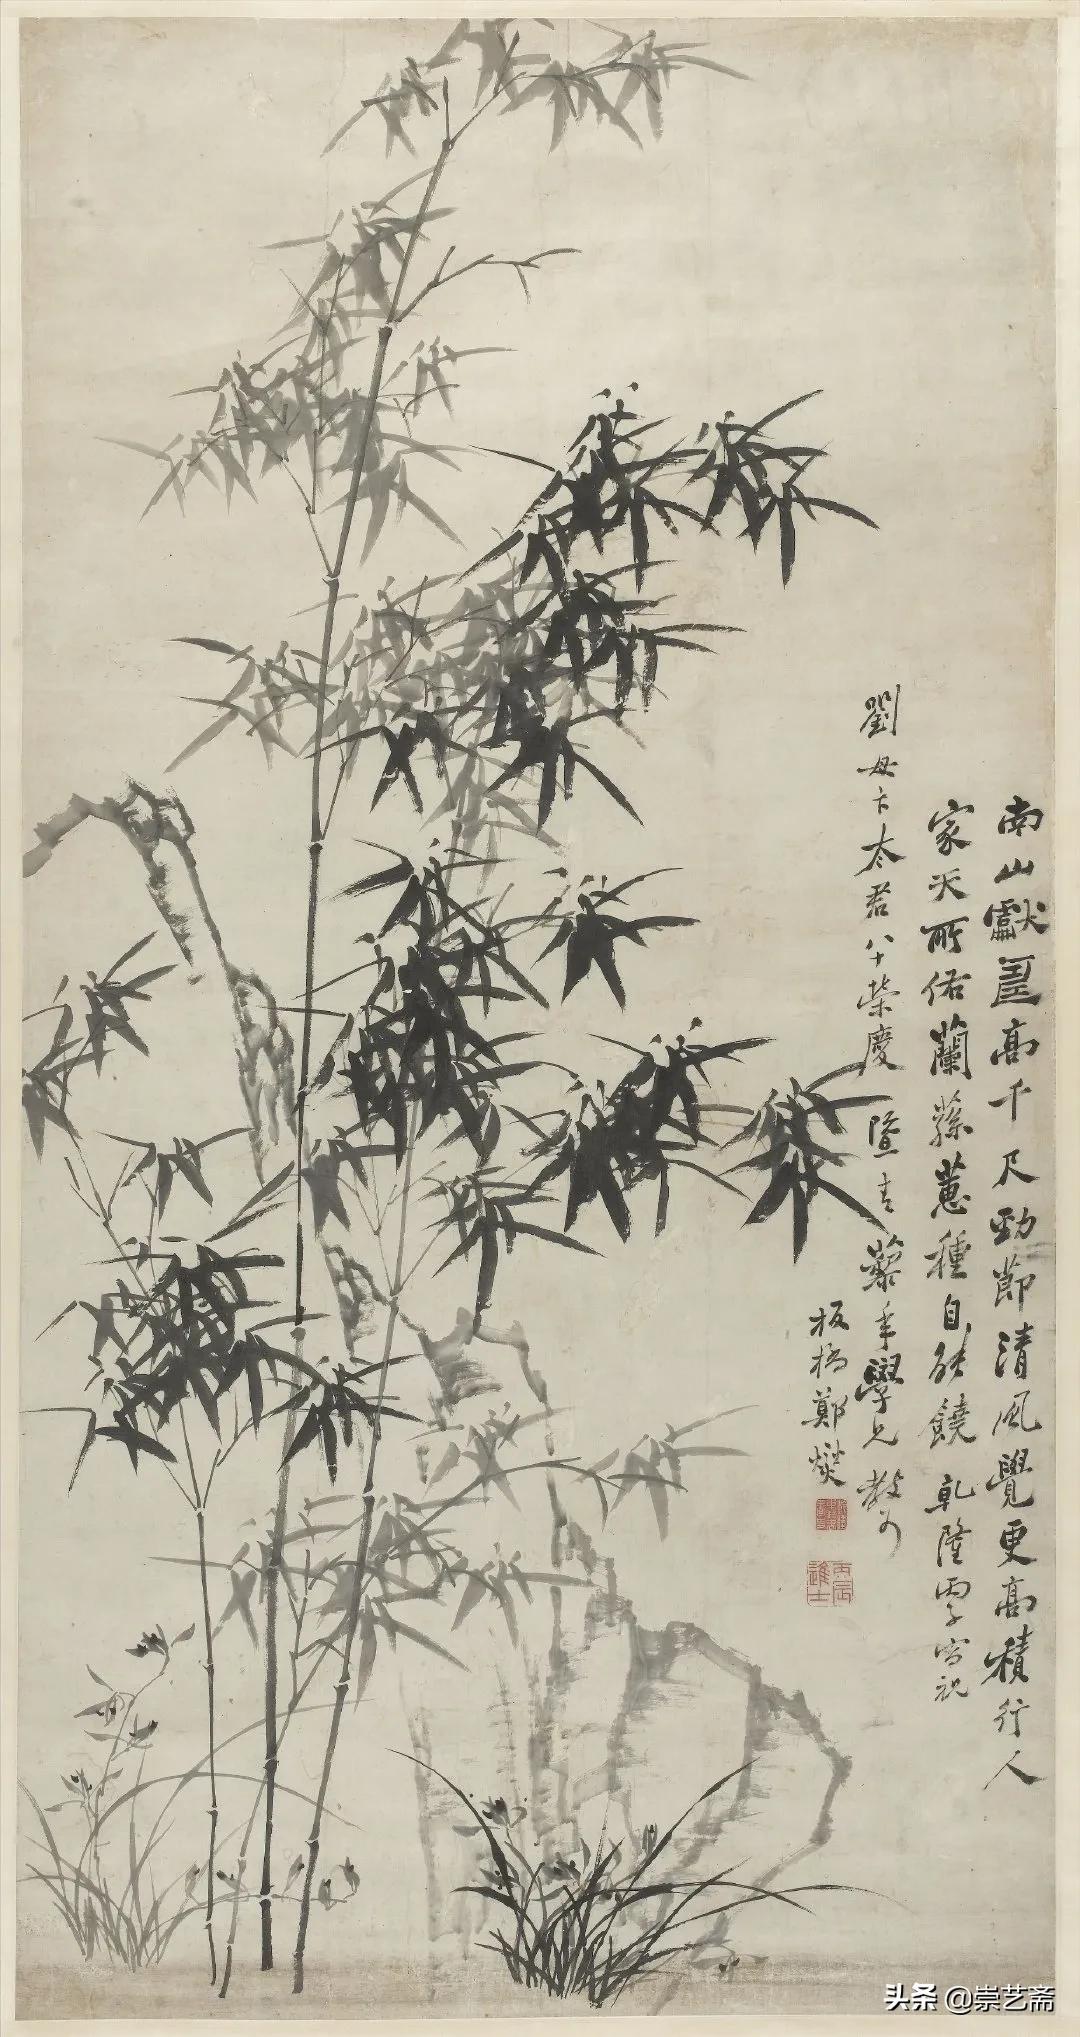 南山獻壽高千尺勁節清風覺更高積行人
家天所佑蘭蓀蕙種自能饒 乾隆丙子寫祝
劉母卞太君八十榮慶 暨青藜年學兄教可
板橋鄭燮
丙辰進士
头条 @崇艺斋